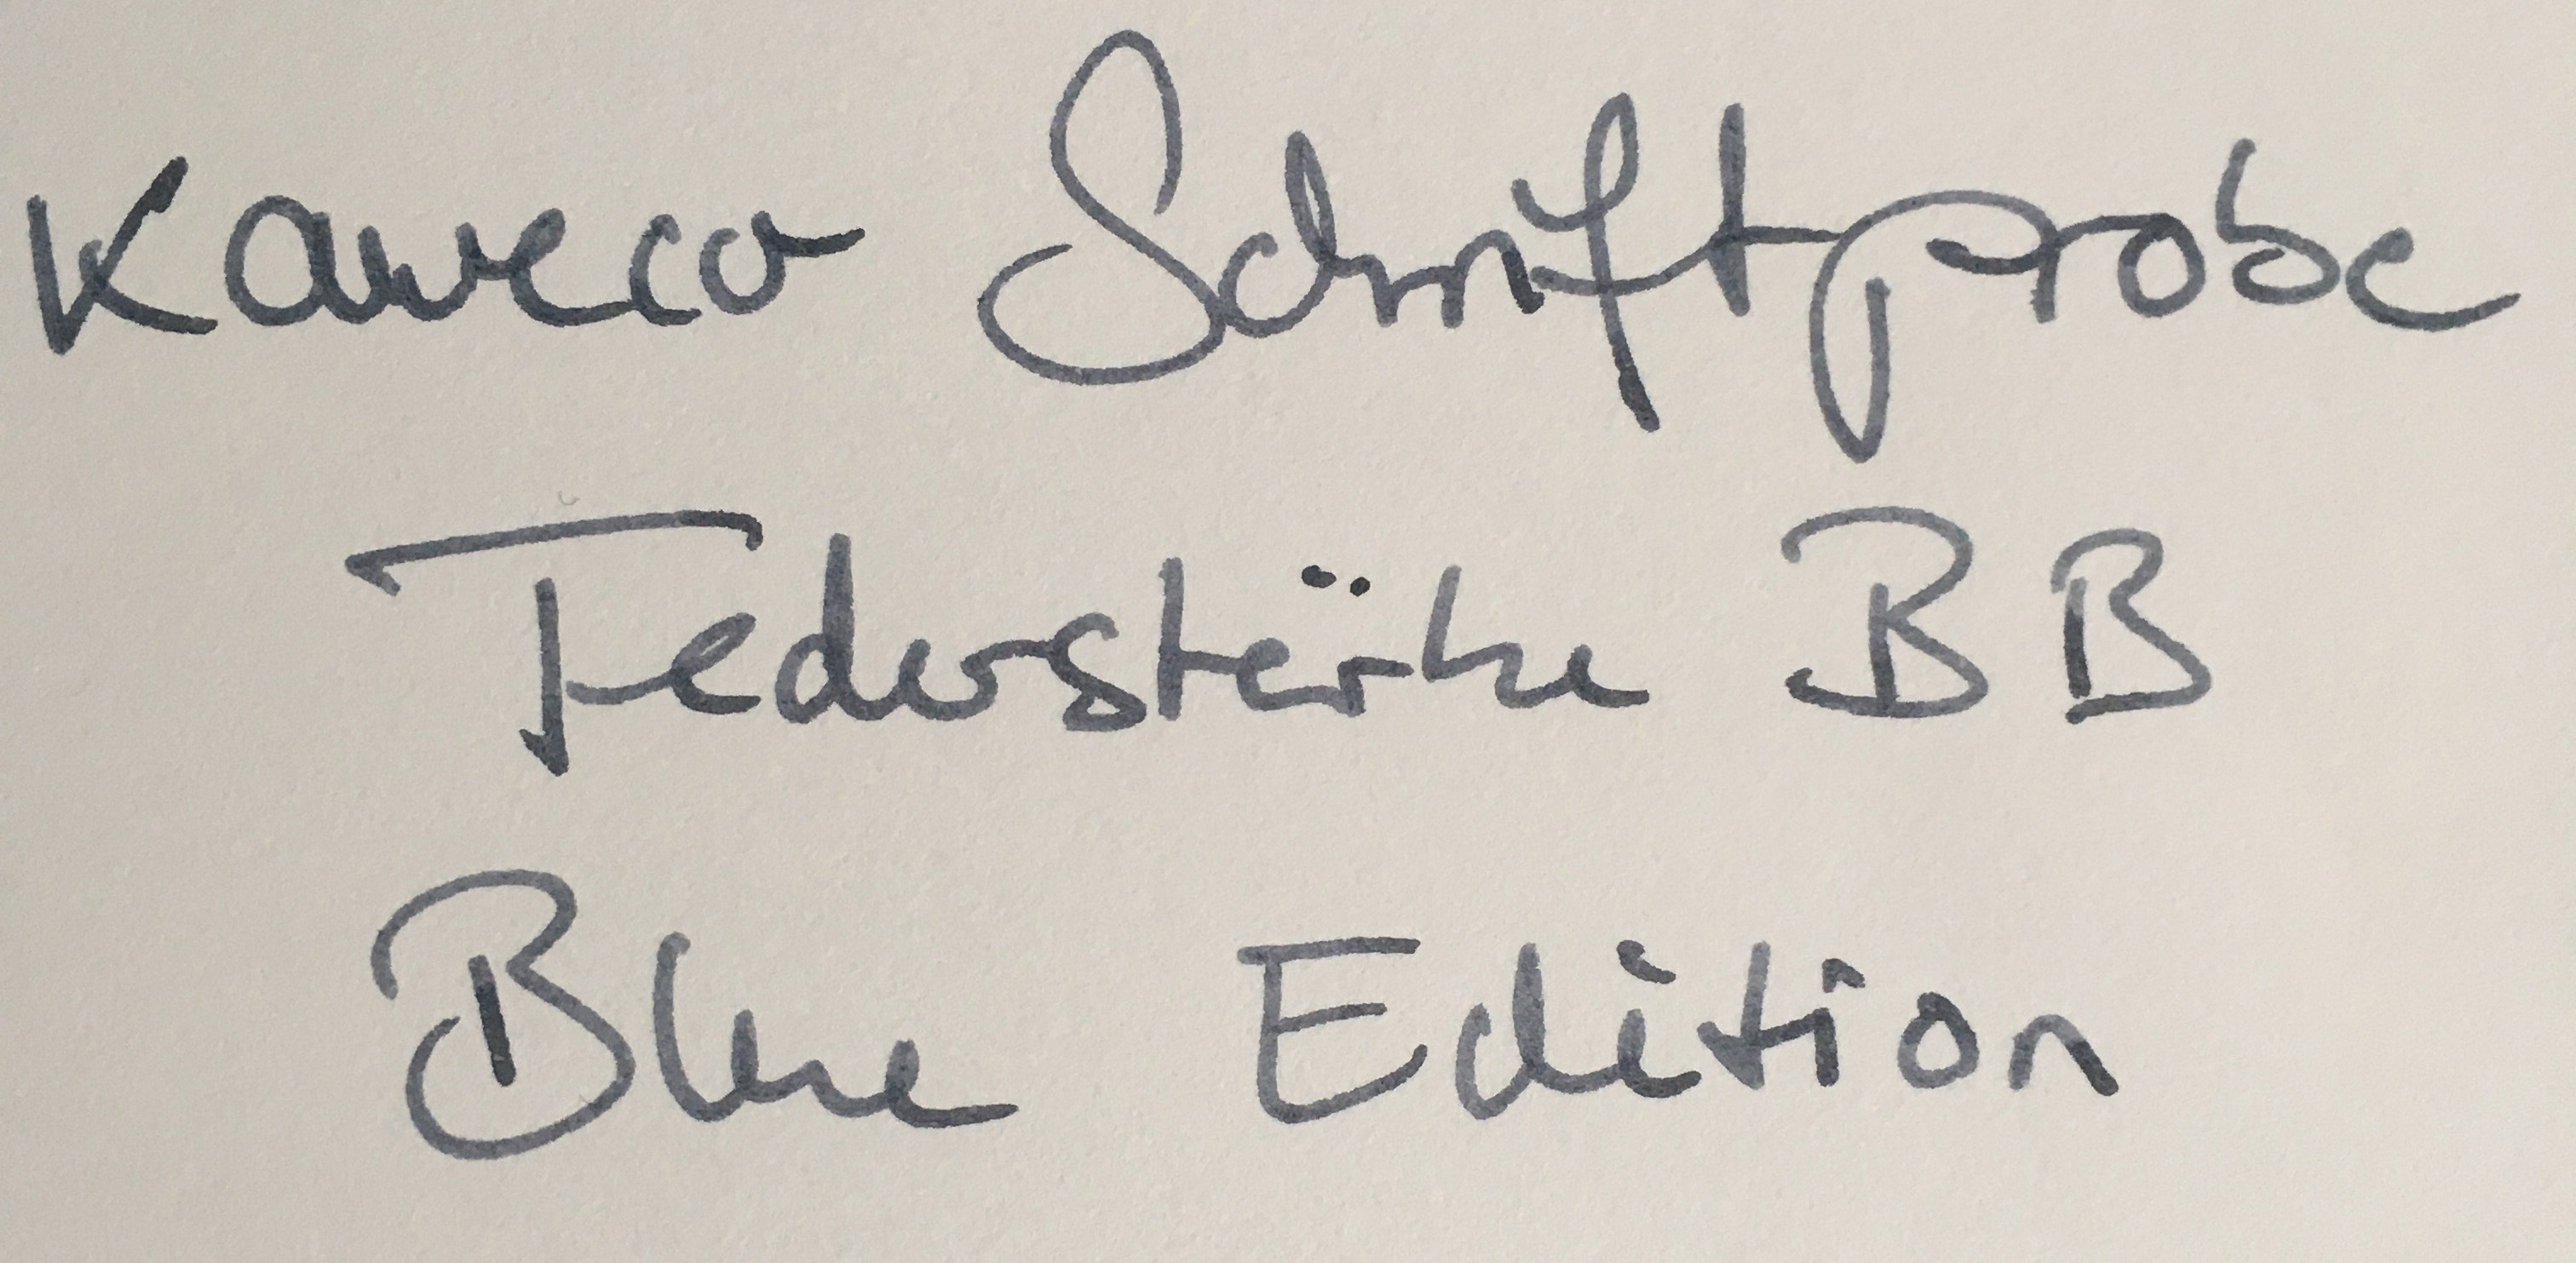 Kaweco Schriftprobe
Federstärke BB
Blue Edition